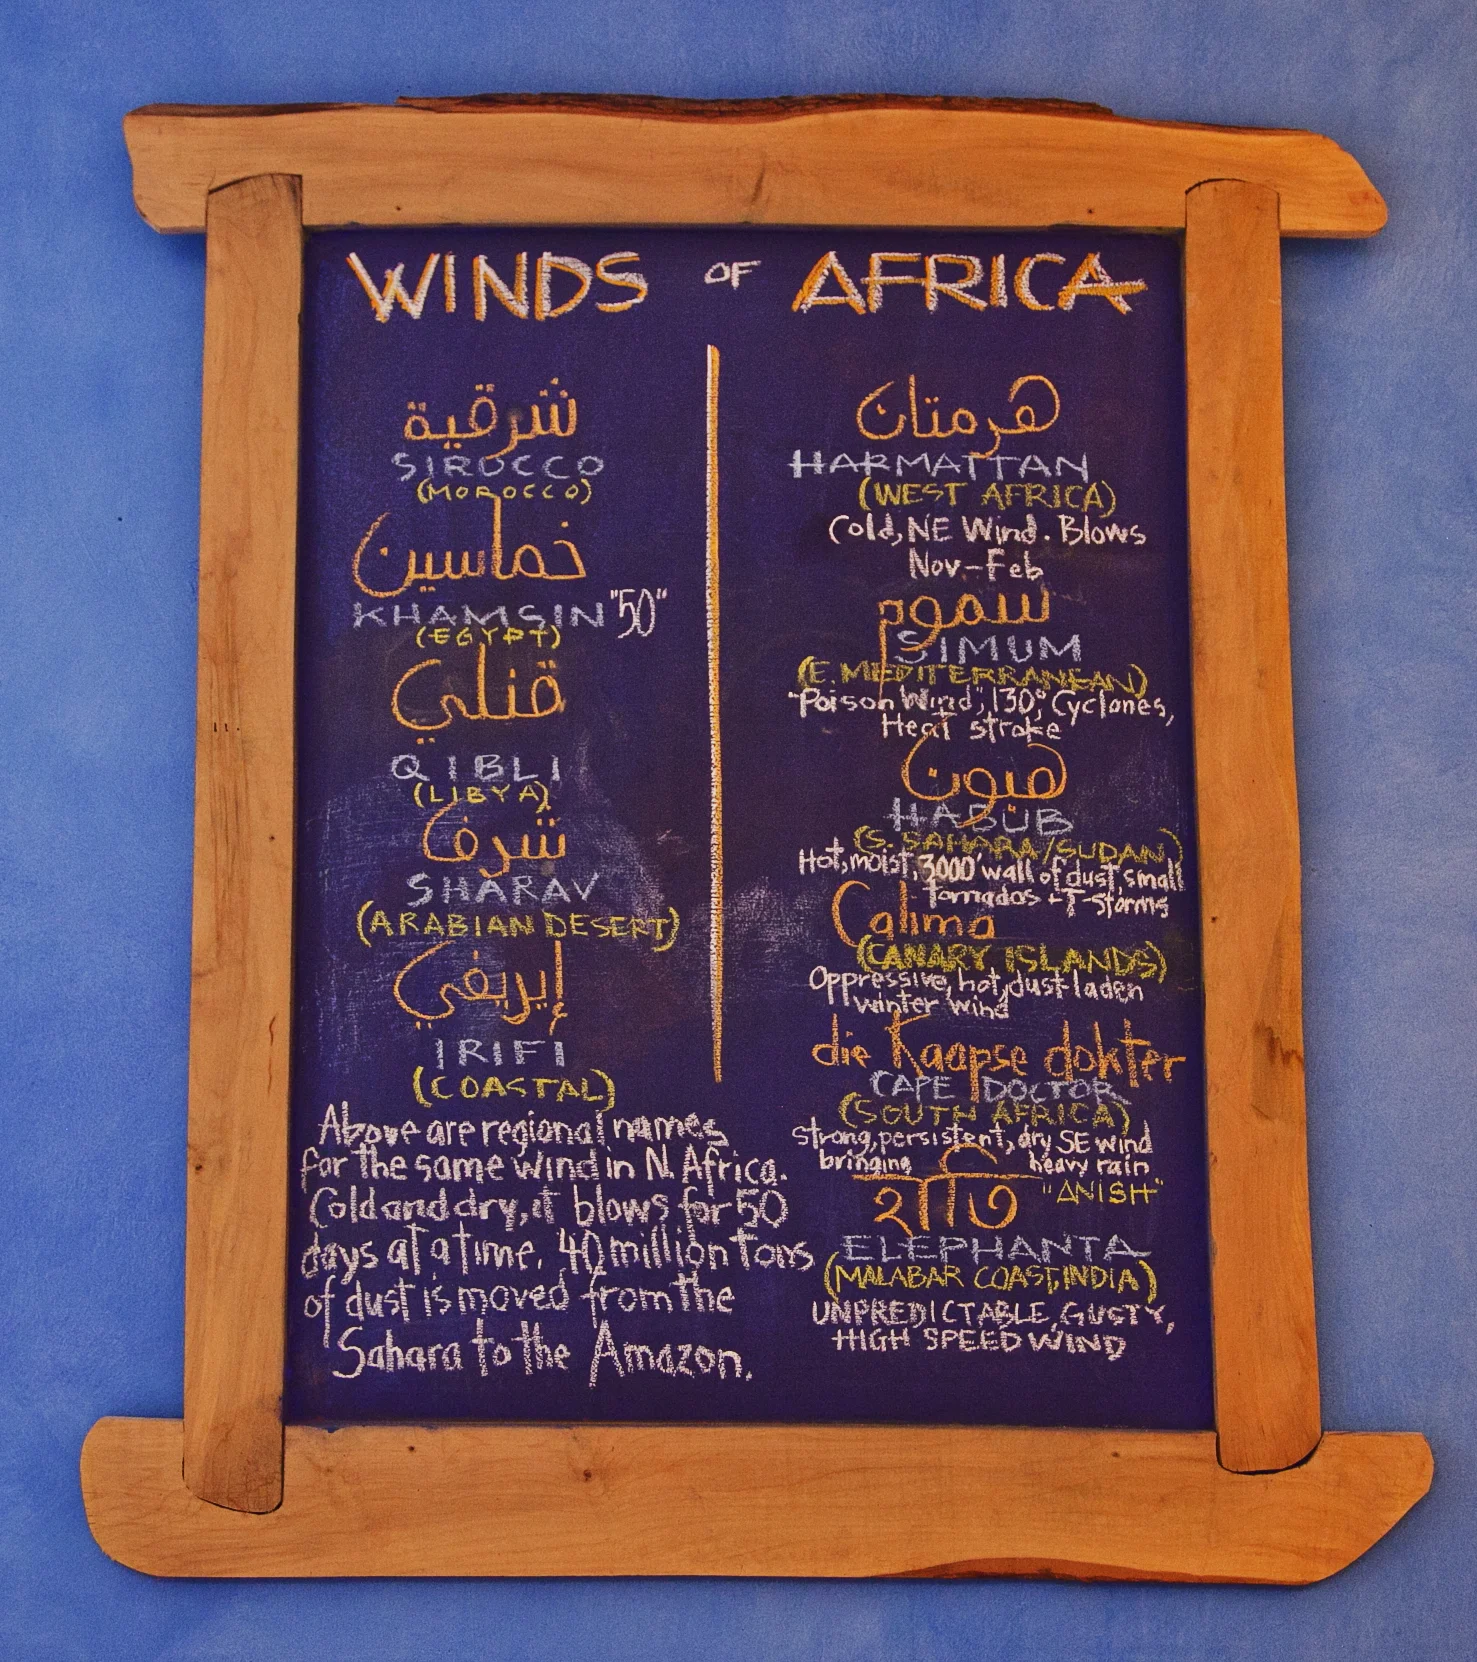 WINDS OF AFRICA
شرقية
SIROCCO
(MOROCCO)
خماسين
KHAMSIN "50"
(EGYPT)
قنلي
QIBLI
(LIBYA)
شرف
SHARAV
(ARABIAN DESERT)
إيريفي
IRIFI
(COASTAL)
Above are regional names
for the same wind in N. Africa.
Cold and dry, it blows for 50
days at a time. 40 million tons
of dust is moved from the
Sahara to the Amazon.
هرمتان
HARMATTAN
(WEST AFRICA)
Cold, NE Wind. Blows
Nov-Feb
سموم
SIMUM
(E. MEDITERRANEAN)
"Poison Wind", 130°, Cyclones,
Heat stroke
هبون
HABUB
(S. SAHARA/SUDAN)
Hot, moist, 3000' wall of dust, small
tornados + T-storms
Calima
(CANARY ISLANDS)
Oppressive, hot, dust-laden
winter wind
die Kaapse dokter
CAPE DOCTOR
(SOUTH AFRICA)
strong, persistent, dry SE wind
bringing heavy rain
"ANISH"
ELEPHANTA
(MALABAR COAST, INDIA)
UNPREDICTABLE, GUSTY,
HIGH SPEED WIND